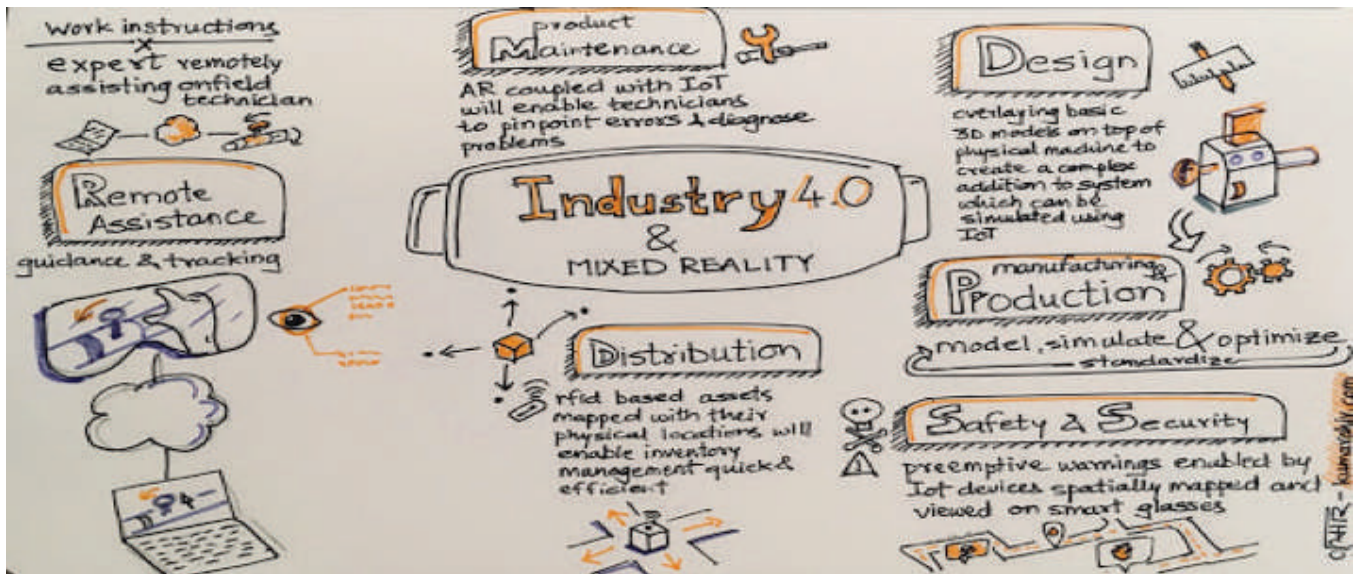 work instructions
expert remotely
assisting onfield
technician
Remote
Assistance
guidance & tracking
product
Maintenance
AR coupled with IoT
will enable technicians
to pinpoint errors & diagnose
problems
Industry 4.0
&
MIXED REALITY
Distribution
rfid based assets
mapped with their
physical locations will
enable inventory
management quick &
efficient
Design
overlaying basic
3D models on top of
physical machine to
create a complex
addition to system
which can be
simulated using
IoT
manufacturing &
Production
model, simulate & optimize
standardize
Safety & Security
preemptive warnings enabled by
IoT devices spatially mapped and
viewed on smart glasses